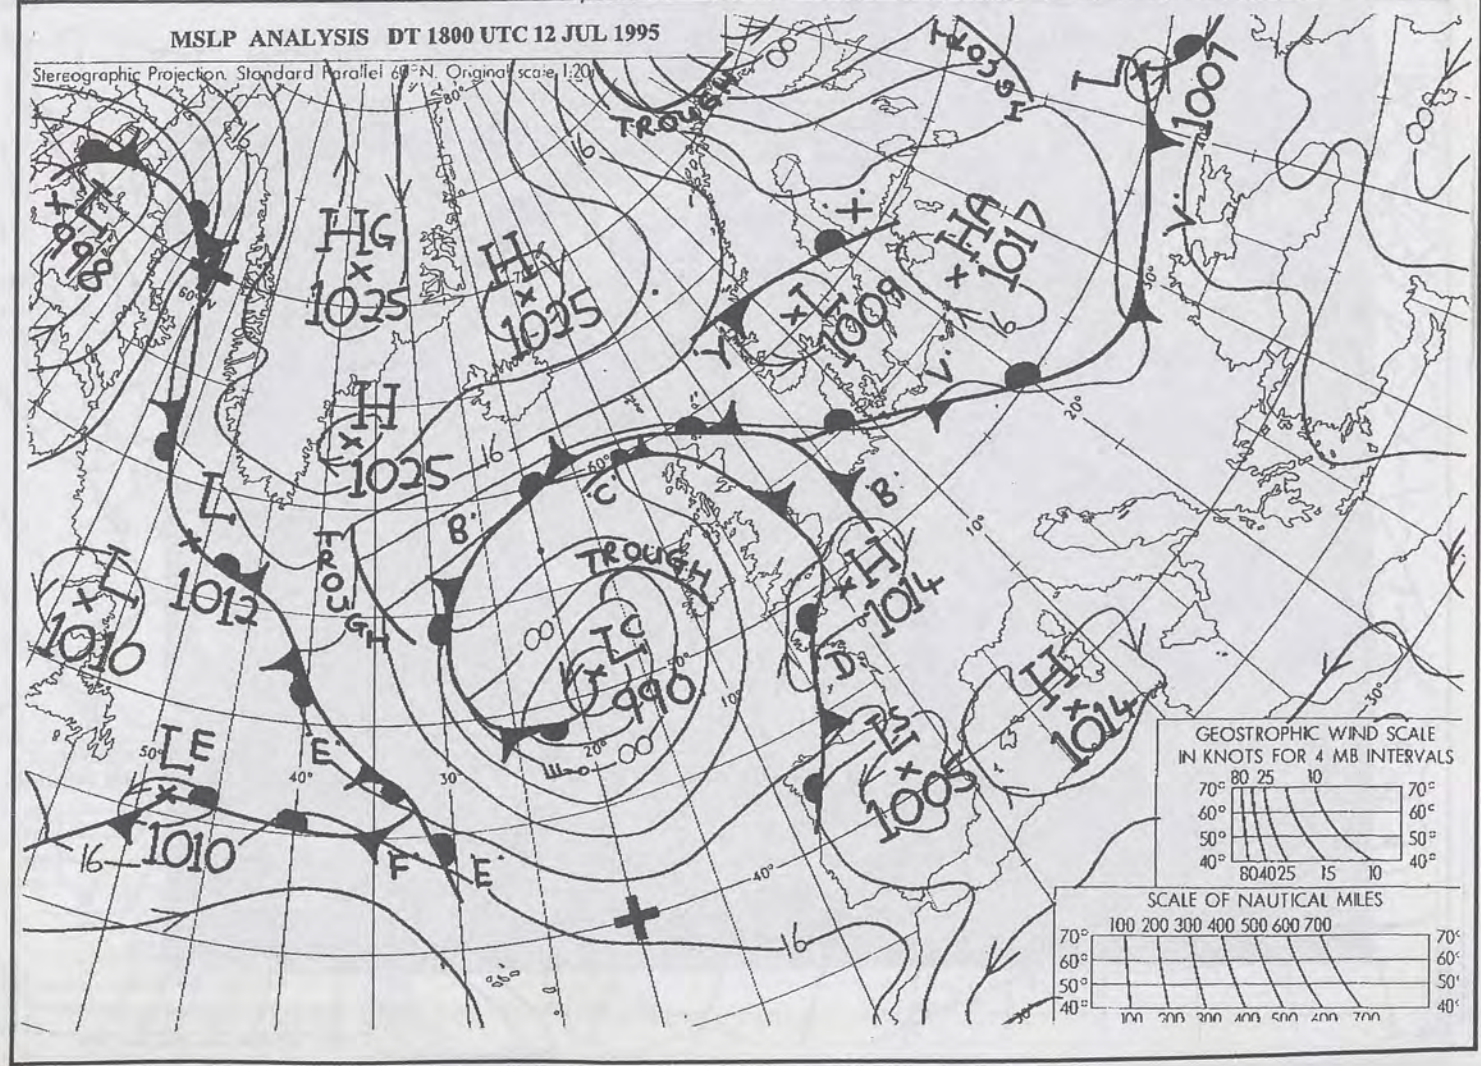 MSLP ANALYSIS DT 1800 UTC 12 JUL 1995
Stereographic Projection. Standard Parallel 60°N. Original scale 1:20
80°
TROUGH
00
TROUGH
L
1007
16
16
L
998
60°N
HG
1025
H
1025
HA
1017
16
L
1009
Y'
V'
V'
H
1025
16
20°
60°
C'
B'
B'
10°
L
1012
TROUGH
TROUGH
H
1014
L
1010
00
LC
990
50°
D
10°
H
1014
30°
LE
1010
50°
40°
E'
30°
20°
00
LS
1005
16
F'
E'
40°
16
GEOSTROPHIC WIND SCALE
IN KNOTS FOR 4 MB INTERVALS
80 25 10
70° 70°
60° 60°
50° 50°
40° 40°
80 40 25 15 10
SCALE OF NAUTICAL MILES
100 200 300 400 500 600 700
70° 70°
60° 60°
50° 50°
40° 40°
100 200 300 400 500 600 700